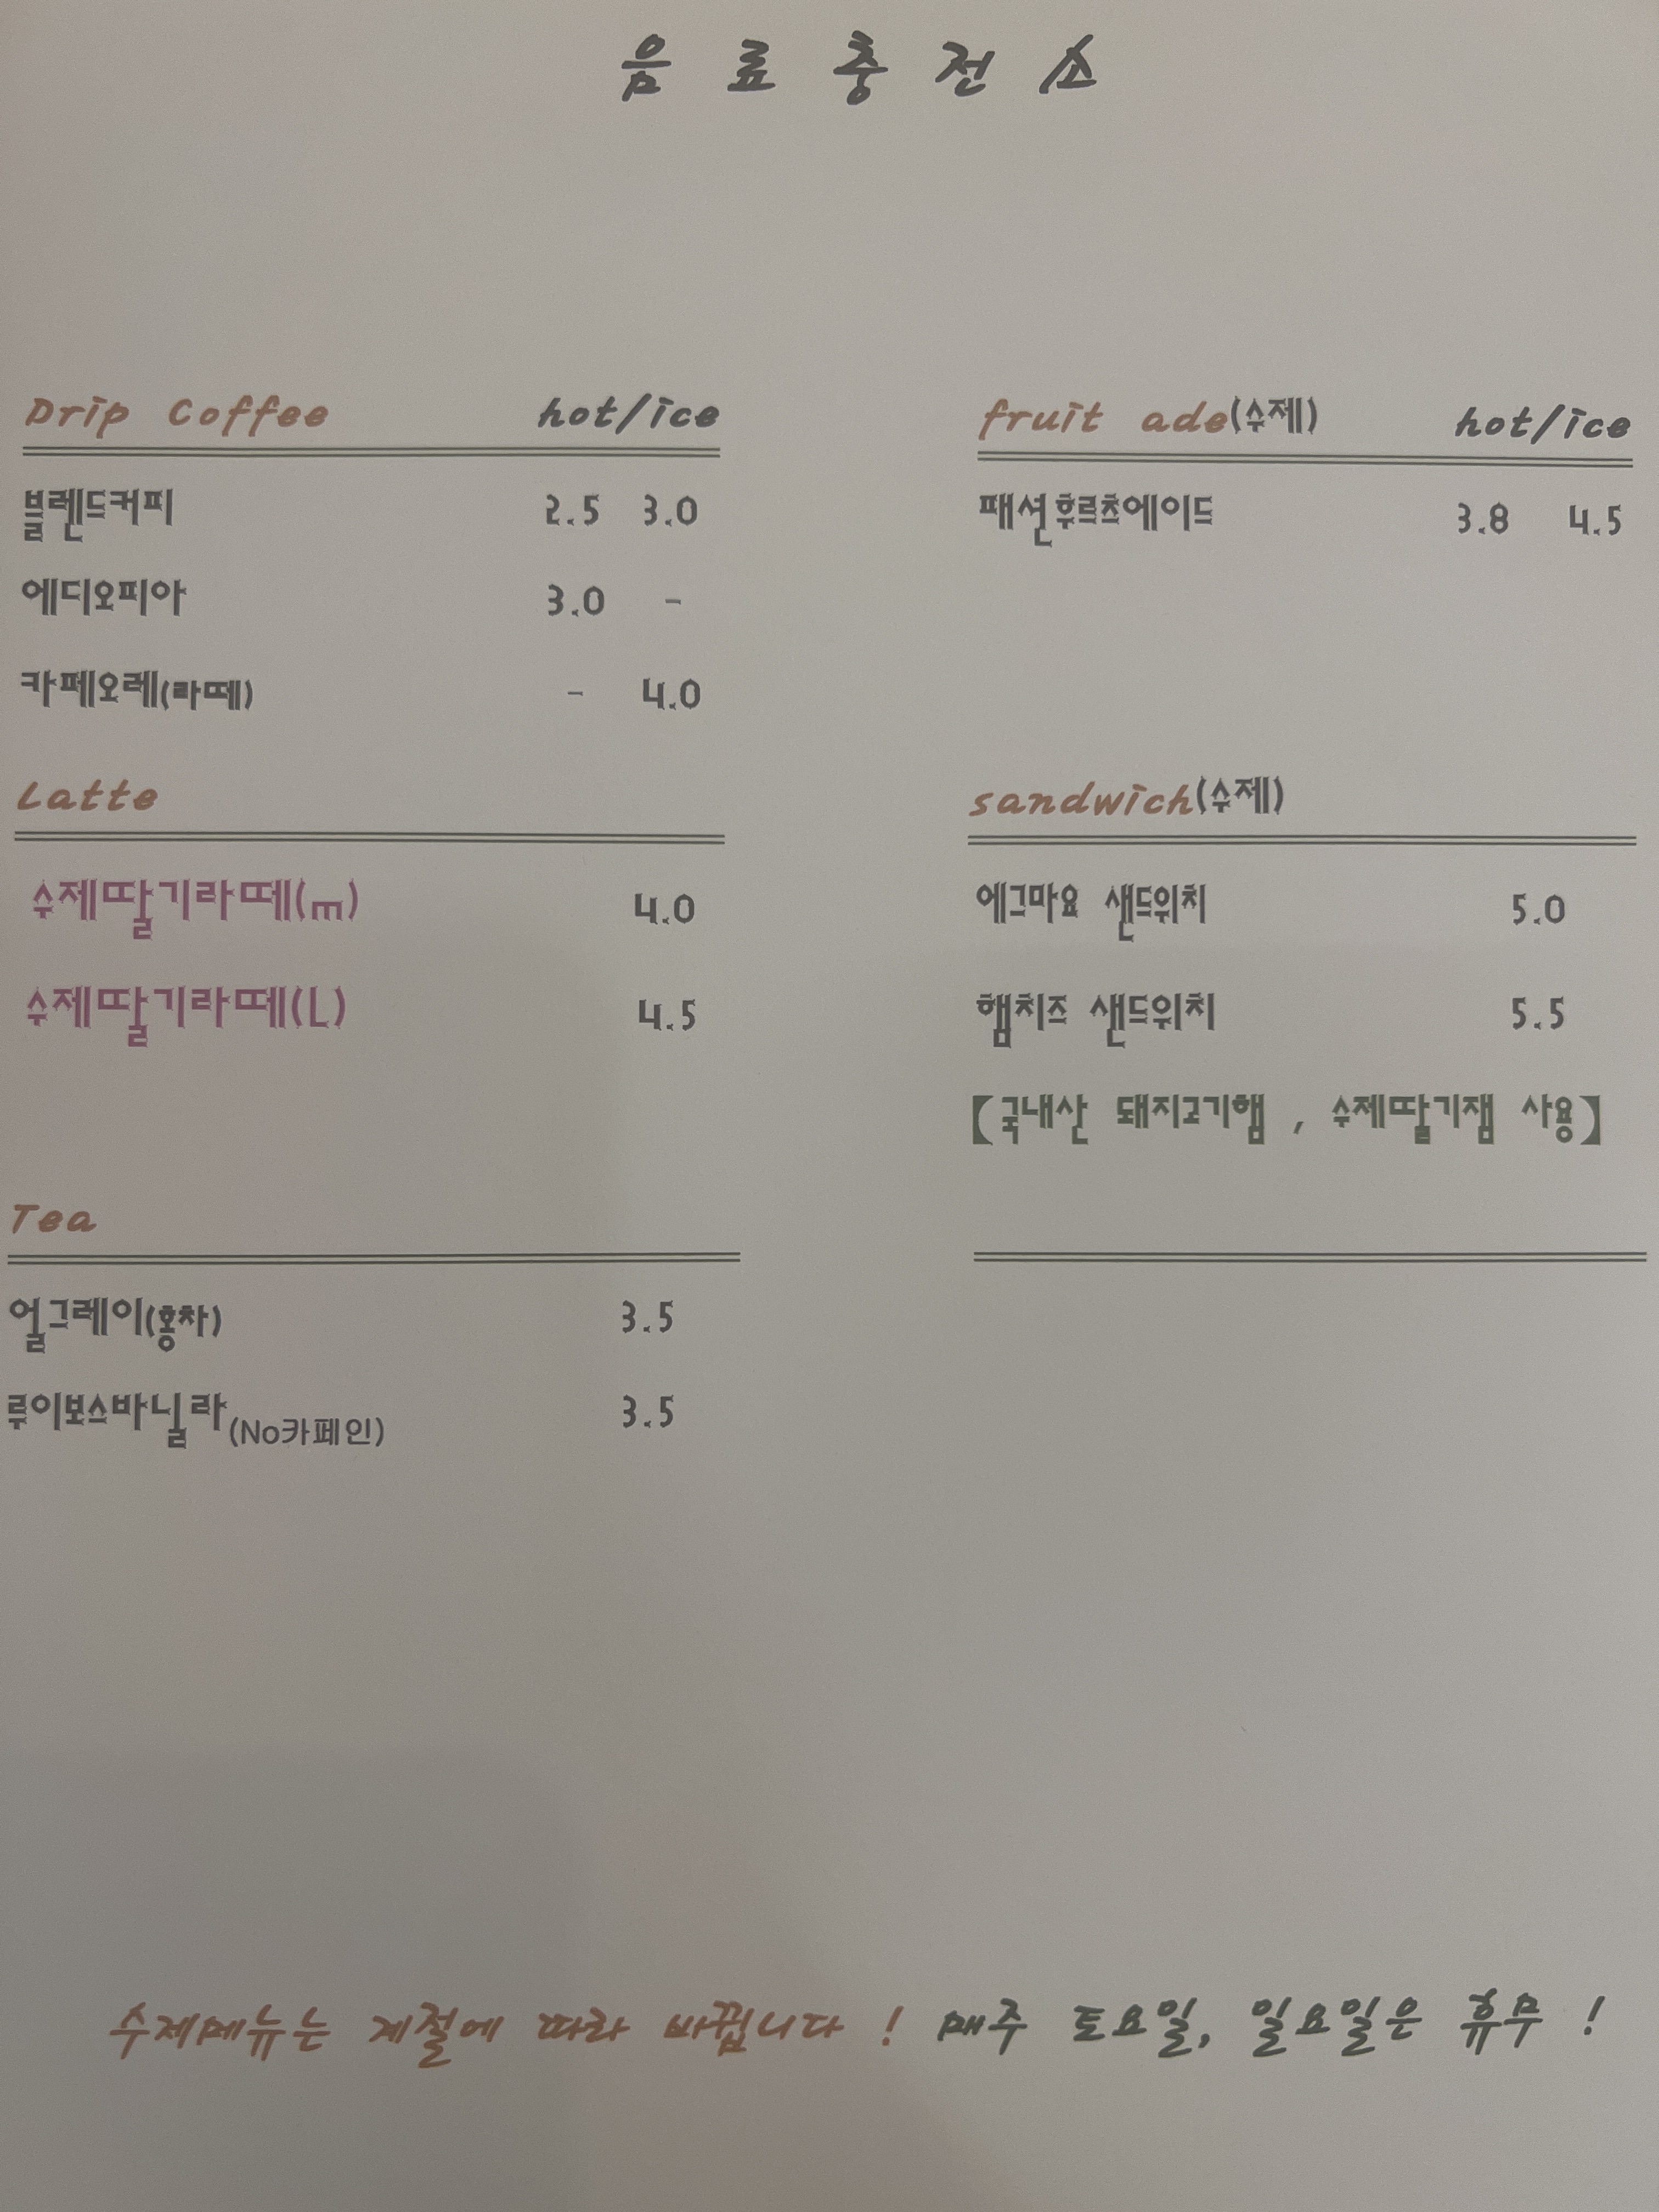 음료충전소
Drip Coffee hot/ice
블렌드커피 2.5 3.0
에디오피아 3.0 -
카페오레(라떼) - 4.0
Latte
수제딸기라떼(m) 4.0
수제딸기라떼(L) 4.5
Tea
얼그레이(홍차) 3.5
루이보스바닐라(No카페인) 3.5
fruit ade(수제) hot/ice
패션후르츠에이드 3.8 4.5
sandwich(수제)
에그마요 샌드위치 5.0
햄치즈 샌드위치 5.5
【국내산 돼지고기햄 , 수제딸기잼 사용】
수제메뉴는 계절에 따라 바뀝니다 ! 매주 토요일, 일요일은 휴무 !